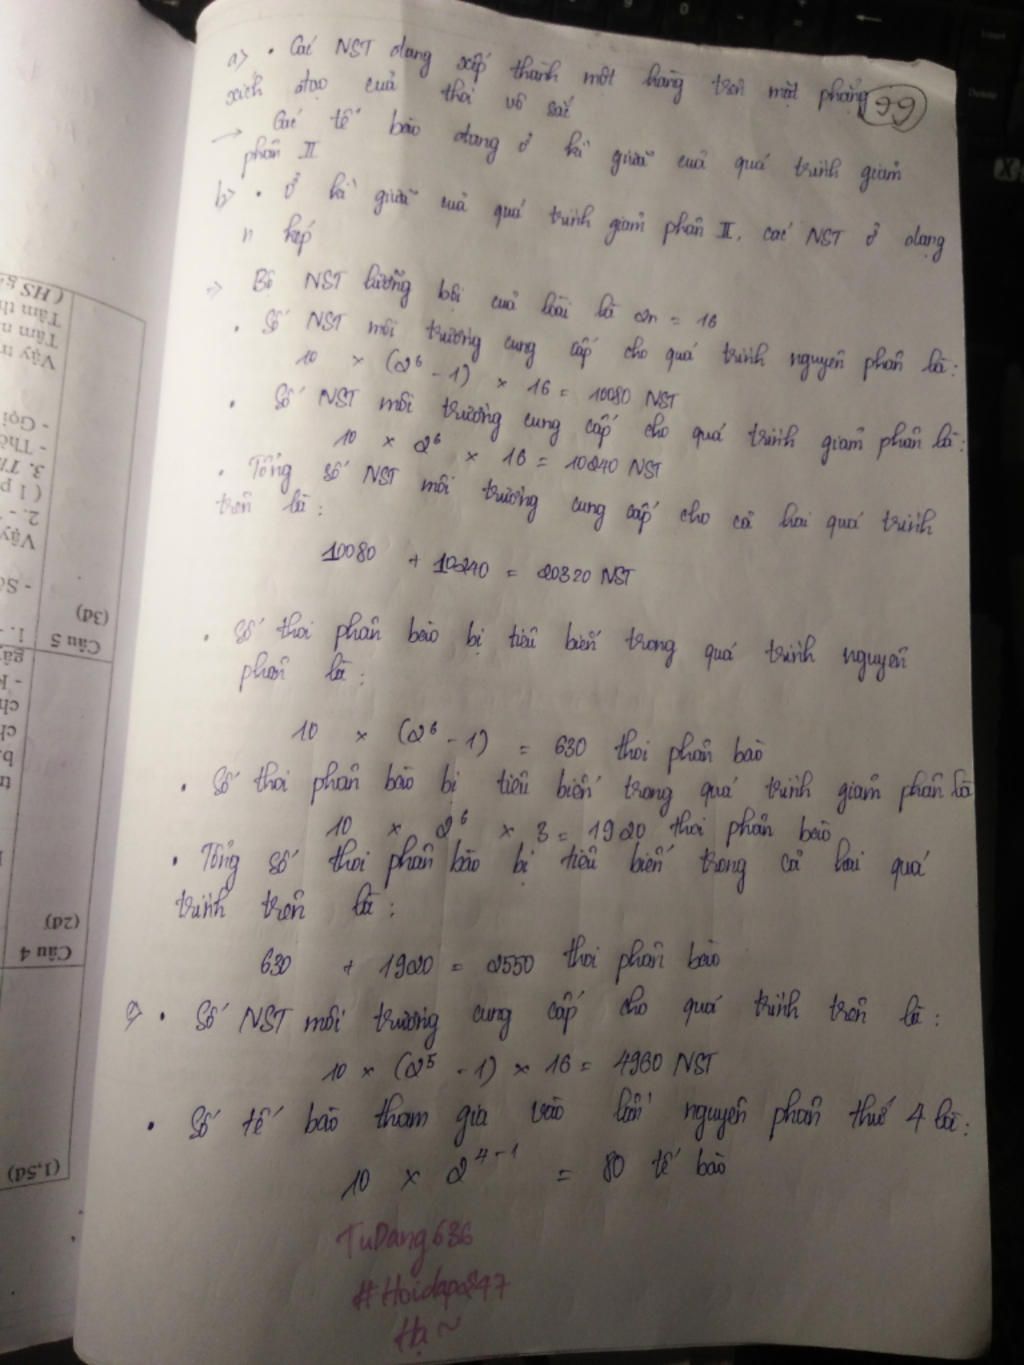 a) • Các NST đang xếp thành một hàng trên mặt phẳng
xích đạo của thoi vô sắc
99
→ Các tế bào đang ở kì giữa của quá trình giảm
phân II
b) • Ở kì giữa của quá trình giảm phân II, các NST ở dạng
n kép
=> Bộ NST lưỡng bội của loài là 2n = 16
• Số NST môi trường cung cấp cho quá trình nguyên phân là:
10 × (2^6 - 1) × 16 = 10080 NST
• Số NST môi trường cung cấp cho quá trình giảm phân là:
10 × 2^6 × 16 = 10240 NST
• Tổng số NST môi trường cung cấp cho cả hai quá trình
trên là:
10080 + 10240 = 20320 NST
• Số thoi phân bào bị tiêu biến trong quá trình nguyên
phân là:
10 × (2^6 - 1) = 630 thoi phân bào
• Số thoi phân bào bị tiêu biến trong quá trình giảm phân là
10 × 2^6 × 3 = 1920 thoi phân bào
• Tổng số thoi phân bào bị tiêu biến trong cả hai quá
trình trên là:
630 + 1920 = 2550 thoi phân bào
c) • Số NST môi trường cung cấp cho quá trình trên là:
10 × (2^5 - 1) × 16 = 4960 NST
• Số tế bào tham gia vào lần nguyên phân thứ 4 là:
10 × 2^4-1 = 80 tế bào
TuDang636
#Hoidap247
Hạ ~
(HS g
Tâm th
Tâm n
Vậy m
- Gọi
- Th
3. T
(1 p
2. -
Vậy
- Số
(3đ)
Câu 5
1. -
(2đ)
Câu 4
(1,5đ)